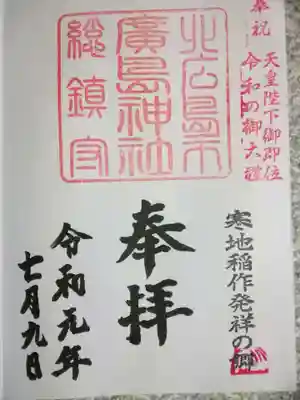 奉祝
天皇陛下御即位
令和の御大禮
北広島市
廣島神社
総鎮守
寒地稲作発祥の
奉拝
令和元年
七月九日